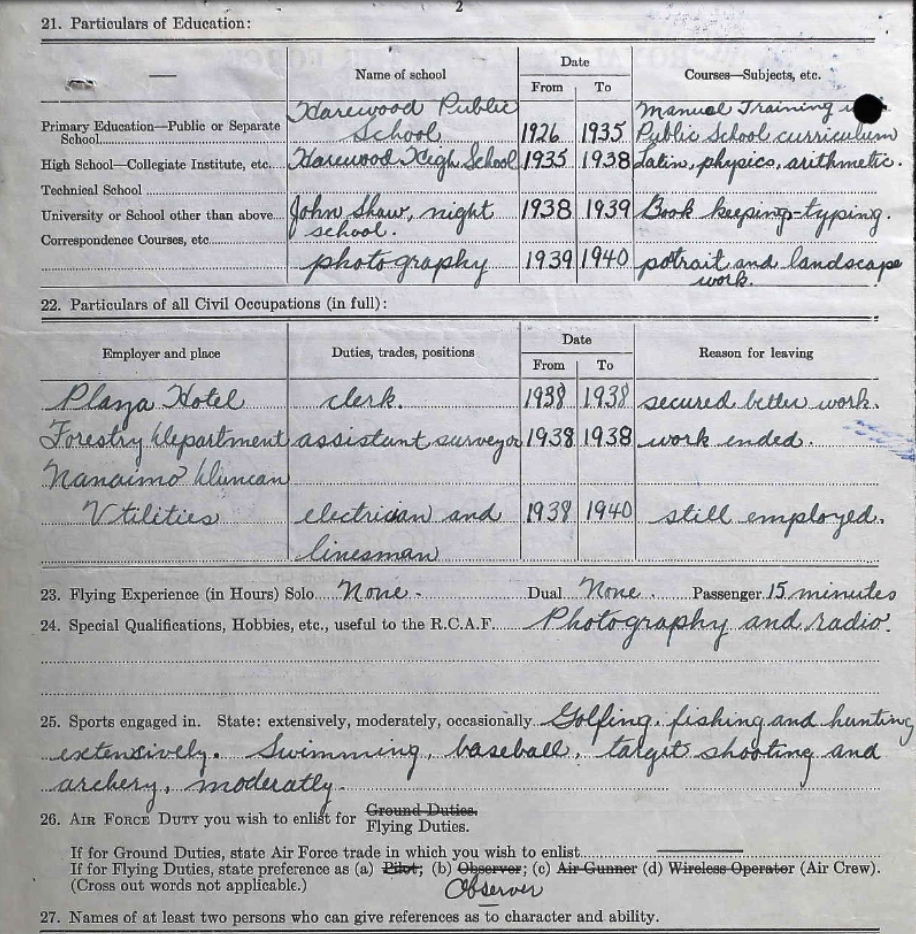 2
21. Particulars of Education:
— Name of school Date From To Courses—Subjects, etc.
Harewood Public Manual Training
Primary Education—Public or Separate School School 1926 1935 Public School curriculum
High School—Collegiate Institute, etc. Harewood High School 1935 1938 Latin, physics, arithmetic.
Technical School
University or School other than above John Shaw, night school. 1938 1939 Book keeping-typing.
Correspondence Courses, etc.
photography 1939 1940 potrait and landscape
work.
22. Particulars of all Civil Occupations (in full):
Employer and place Duties, trades, positions Date From To Reason for leaving
Plaza Hotel clerk. 1938 1938 secured better work.
Forestry Department assistant surveyor 1938 1938 work ended.
Nanaimo Duncan
Utilities electrician and 1938 1940 still employed.
linesman
23. Flying Experience (in Hours) Solo None. Dual None. Passenger 15 minutes
24. Special Qualifications, Hobbies, etc., useful to the R.C.A.F. Photography and radio.
25. Sports engaged in. State: extensively, moderately, occasionally Golfing, fishing and hunting
extensively. Swimming, baseball, target shooting and
archery, moderatly.
26. AIR FORCE DUTY you wish to enlist for Ground Duties.
Flying Duties.
If for Ground Duties, state Air Force trade in which you wish to enlist
If for Flying Duties, state preference as (a) Pilot; (b) Observer; (c) Air Gunner (d) Wireless Operator (Air Crew).
(Cross out words not applicable.) Observer
27. Names of at least two persons who can give references as to character and ability.